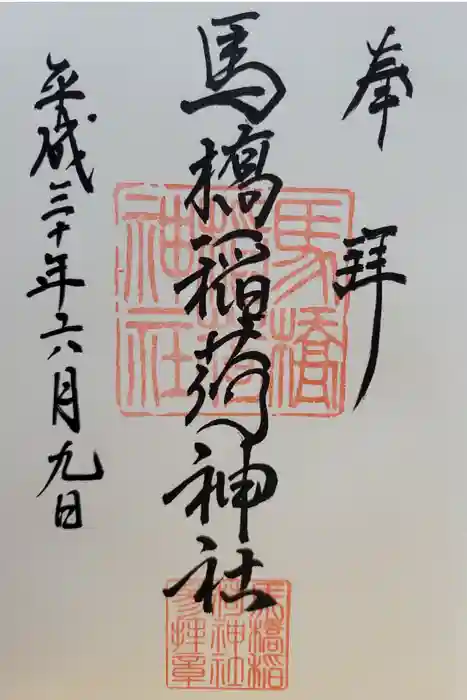 奉拝
馬橋稲荷神社
平成三十年六月九日
馬橋
稲荷
神社
馬橋稲
荷神社
参拝章